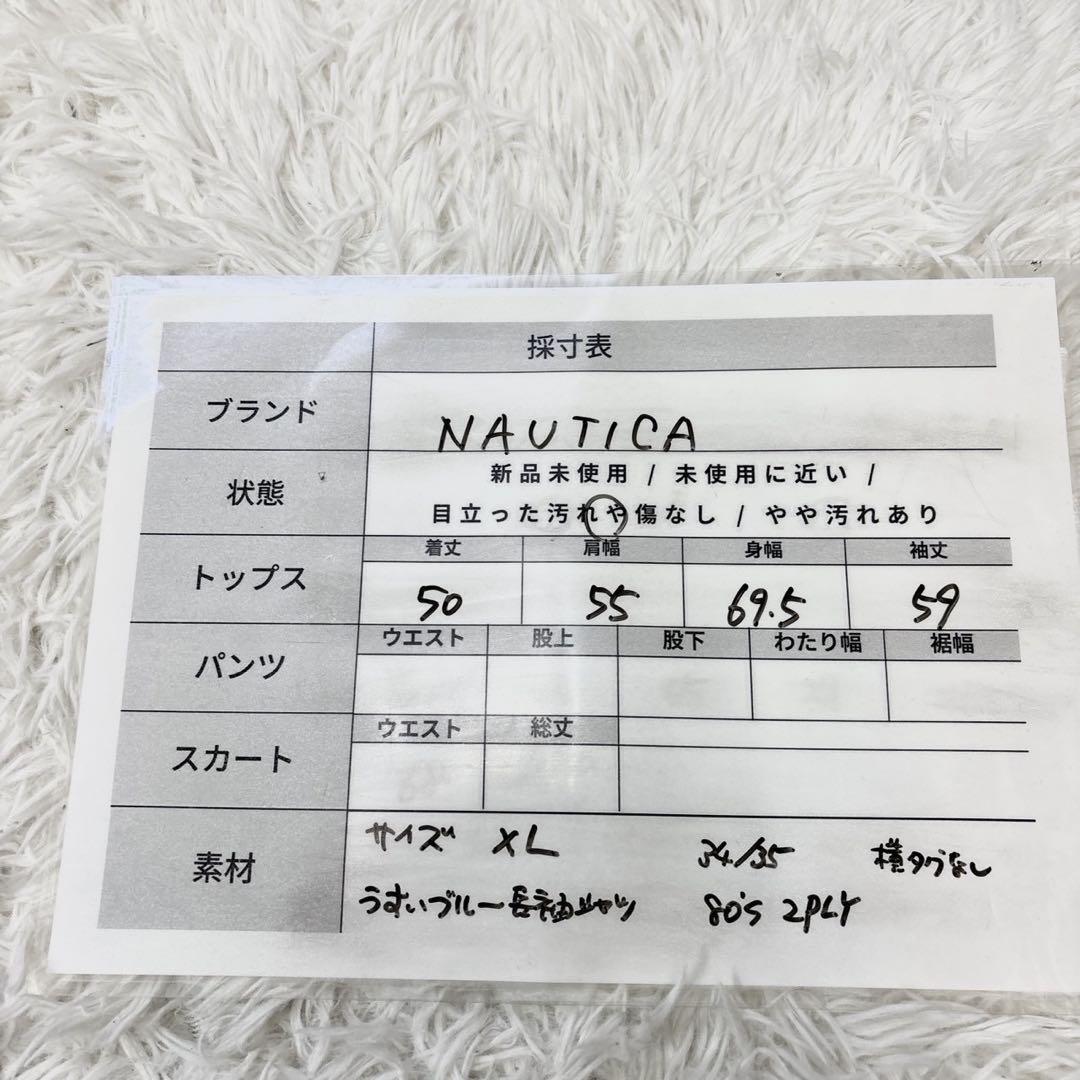 採寸表
ブランド NAUTICA
状態 新品未使用 / 未使用に近い /
目立った汚れや傷なし / やや汚れあり
トップス 着丈 肩幅 身幅 袖丈
50 55 69.5 59
パンツ ウエスト 股上 股下 わたり幅 裾幅
スカート ウエスト 総丈
素材 サイズ XL 34/35 横タグなし
うすいブルー長袖シャツ 80's 2PLY